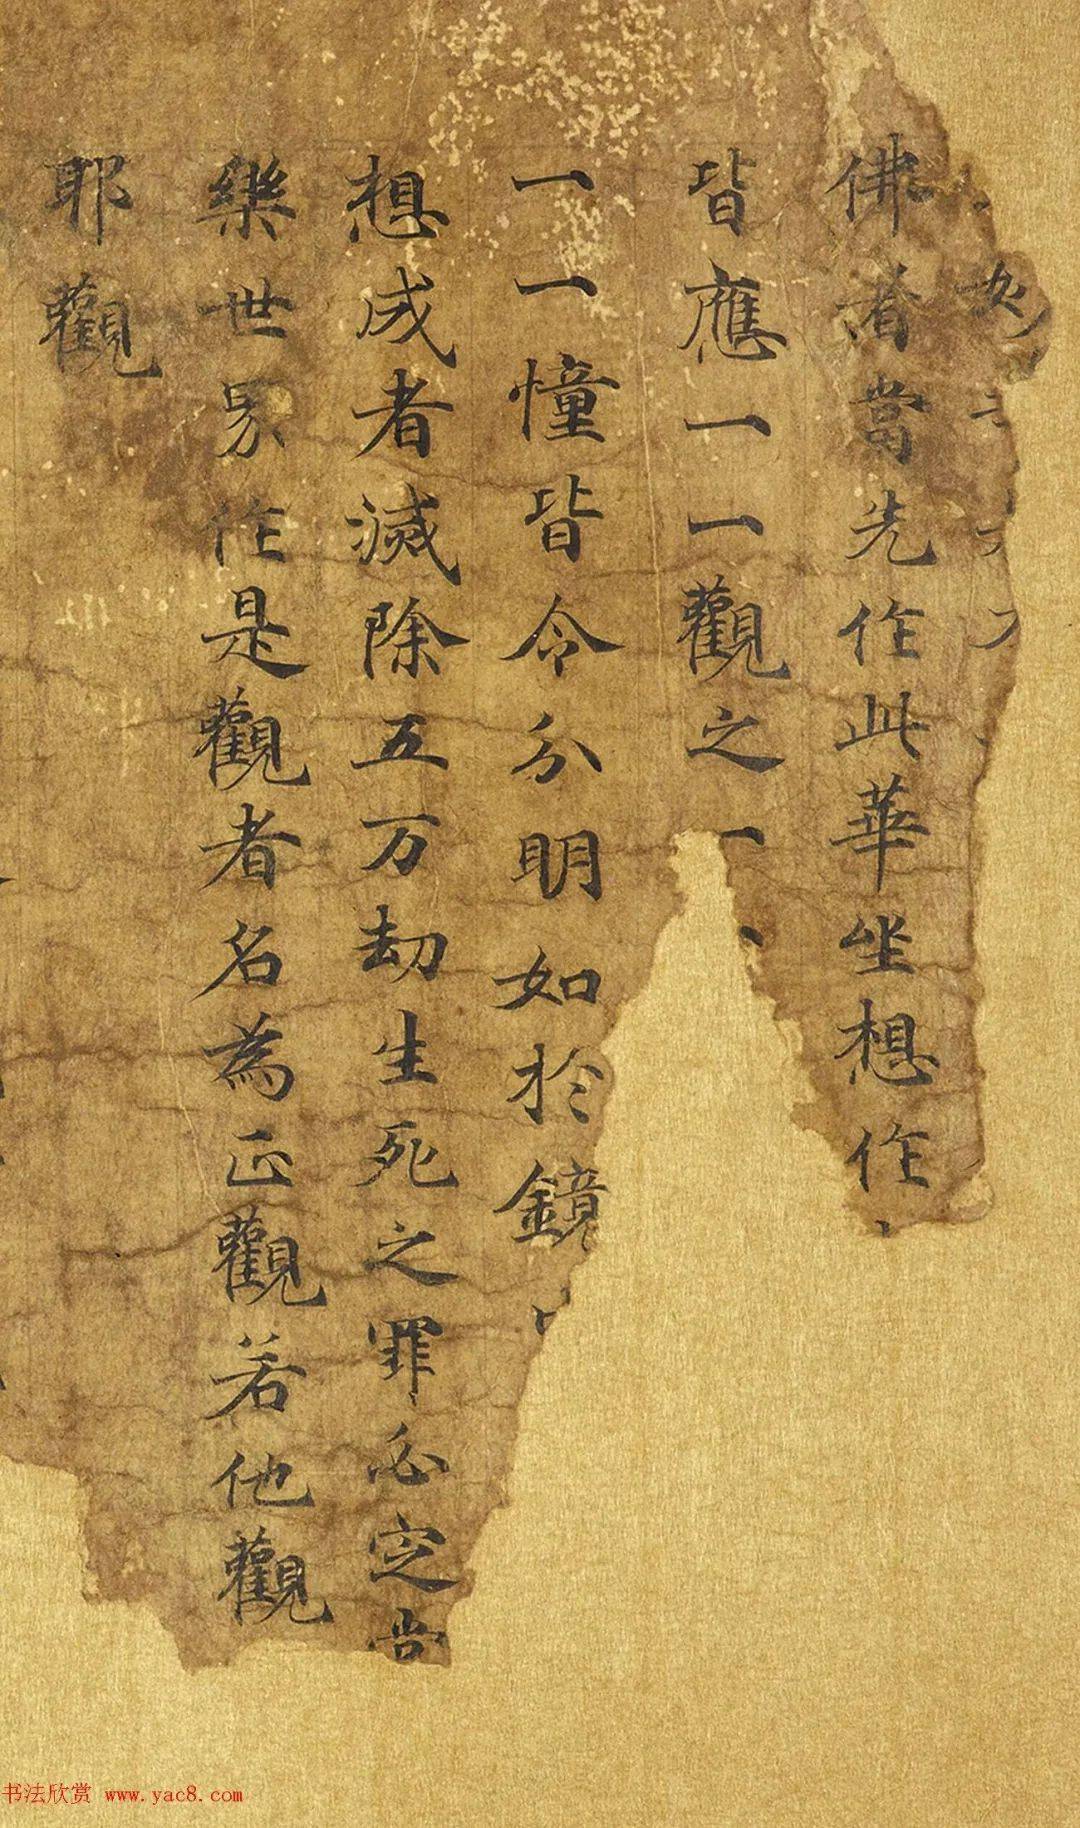 佛者當先作此華坐想作
皆應一一觀之一
一一憧皆令分明如於鏡
想成者滅除五万劫生死之罪必定當
樂世界作是觀者名為正觀若他觀
耶觀
书法欣赏 www.yac8.com